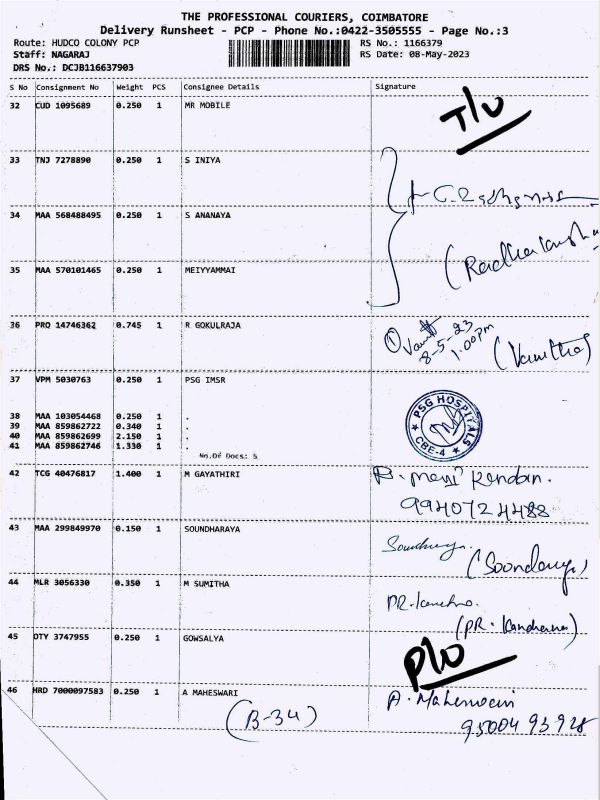 THE PROFESSIONAL COURIERS, COIMBATORE
Delivery Runsheet - PCP - Phone No.:0422-3505555 - Page No.:3
Route: HUDCO COLONY PCP RS No.: 1166379
Staff: NAGARAJ RS Date: 08-May-2023
DRS No.: DCJB116637903
S No Consignment No Weight PCS Consignee Details Signature
32 CUD 1095689 0.250 1 MR MOBILE
33 TNJ 7278890 0.250 1 S INIYA
34 MAA 568488495 0.250 1 S ANANAYA
35 MAA 570101465 0.250 1 MEIYYAMMAI
36 PRO 14746362 0.745 1 R GOKULRAJA
① 8-5-23
1.00pm
(Vanitha)
37 VPM 5030763 0.250 1 PSG IMSR
PSG HOSPITALS
CBE-4
38 MAA 103054468 0.250 1 .
39 MAA 859862722 0.340 1 .
40 MAA 859862699 2.150 1 .
41 MAA 859862746 1.330 1 .
No.Of Docs: 5
42 TCG 40476817 1.400 1 M GAYATHIRI
9940724488
43 MAA 299849970 0.150 1 SOUNDHARAYA
44 MLR 3056330 0.350 1 M SUMITHA
45 OTY 3747955 0.250 1 GOWSALYA
46 HRD 7000097583 0.250 1 A MAHESWARI
A. Maheswari
(B-34) 9500493928